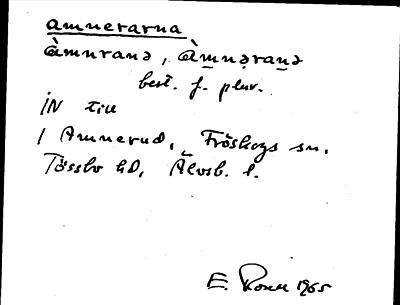 amnerarna
àmnranə, àmnəranə
best. f. plur.
IN till
1 Amnerud, Fröskogs sn,
Tössbo hd, Älvsb. l.
E. 1965